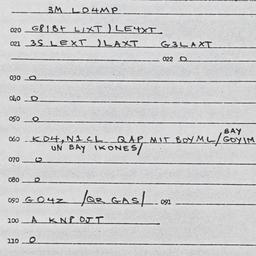 3M LD4MP
020 G81B+ L1XT ) LE4XT
021 3S LEXT )LAXT G3LAXT
022 0
030 0
040 0
050 0
060 KD4,N1CL QAP MIT BOYML/ BAY GOYIM
UN BAY IKONES/
070 0
080 0
090 GO4Z /QR GAS/ 091
100 A KNPOJT
110 0